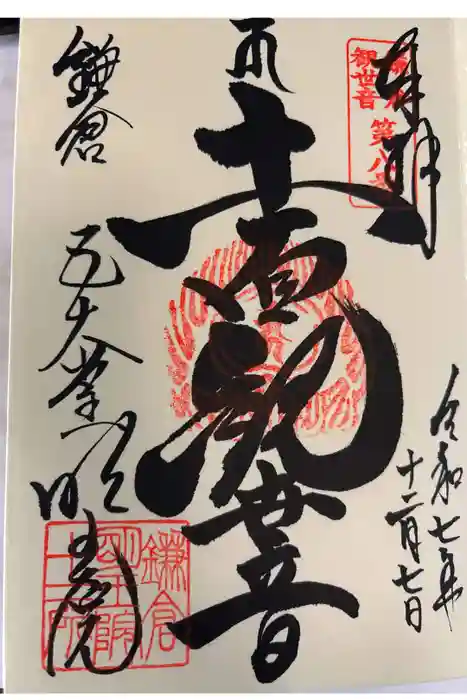 奉拝
鎌倉
観世音
第八番
令和七年
十二月七日
十一面観世音
鎌倉
五大堂
明王院